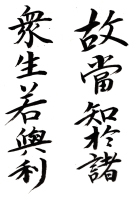 故當知於諸
眾生若與利